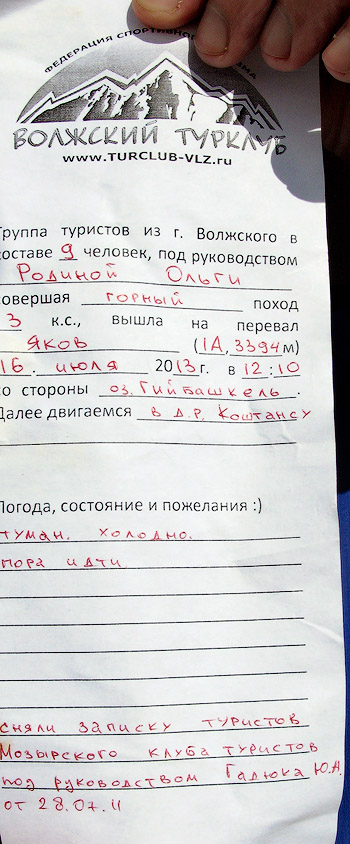 ФЕДЕРАЦИЯ СПОРТИВНОГО
ВОЛЖСКИЙ ТУРКЛУБ
www.TURCLUB-VLZ.ru
Группа туристов из г. Волжского в
составе 9 человек, под руководством
Родиной Ольги
совершая горный поход
3 к.с., вышла на перевал
Яков (1А, 3394 м)
16. июля 2013 г. в 12:10
со стороны оз. Гийбашкель.
Далее двигаемся в д.р. Коштансу
Погода, состояние и пожелания :)
туман. холодно.
пора идти
сняли записку туристов
Мозырского клуба туристов
под руководством Гадюка Ю.А.
от 28.07.11